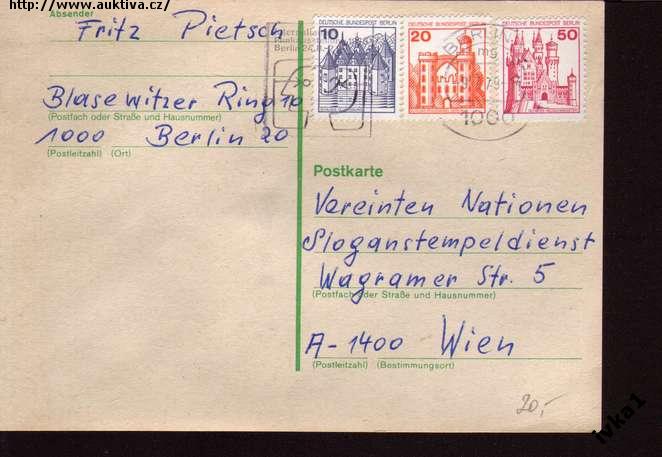 http://www.auktiva.cz/
Absender
Fritz Pietsch
Blasewitzer Ring 10
(Postfach oder Straße und Hausnummer)
1000 Berlin 20
(Postleitzahl) (Ort)
10 DEUTSCHE BUNDESPOST BERLIN
20 DEUTSCHE BUNDESPOST BERLIN
50 DEUTSCHE BUNDESPOST BERLIN
Berlin
1000
Postkarte
Vereinten Nationen
Sloganstempeldienst
Wagramer Str. 5
(Postfach oder Straße und Hausnummer)
A-1400 Wien
(Postleitzahl) (Bestimmungsort)
20,-
ivka1